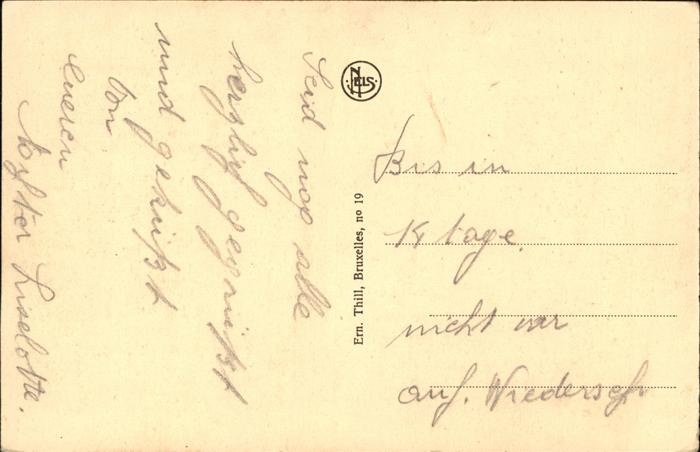 Seid noch alle
herzlich gegrüßt
und geküßt
Von
Eueren
Liselotte.
NELS
Ern. Thill, Bruxelles, no 19
Bis in
14 tage.
nicht war
auf. Wiedersehn